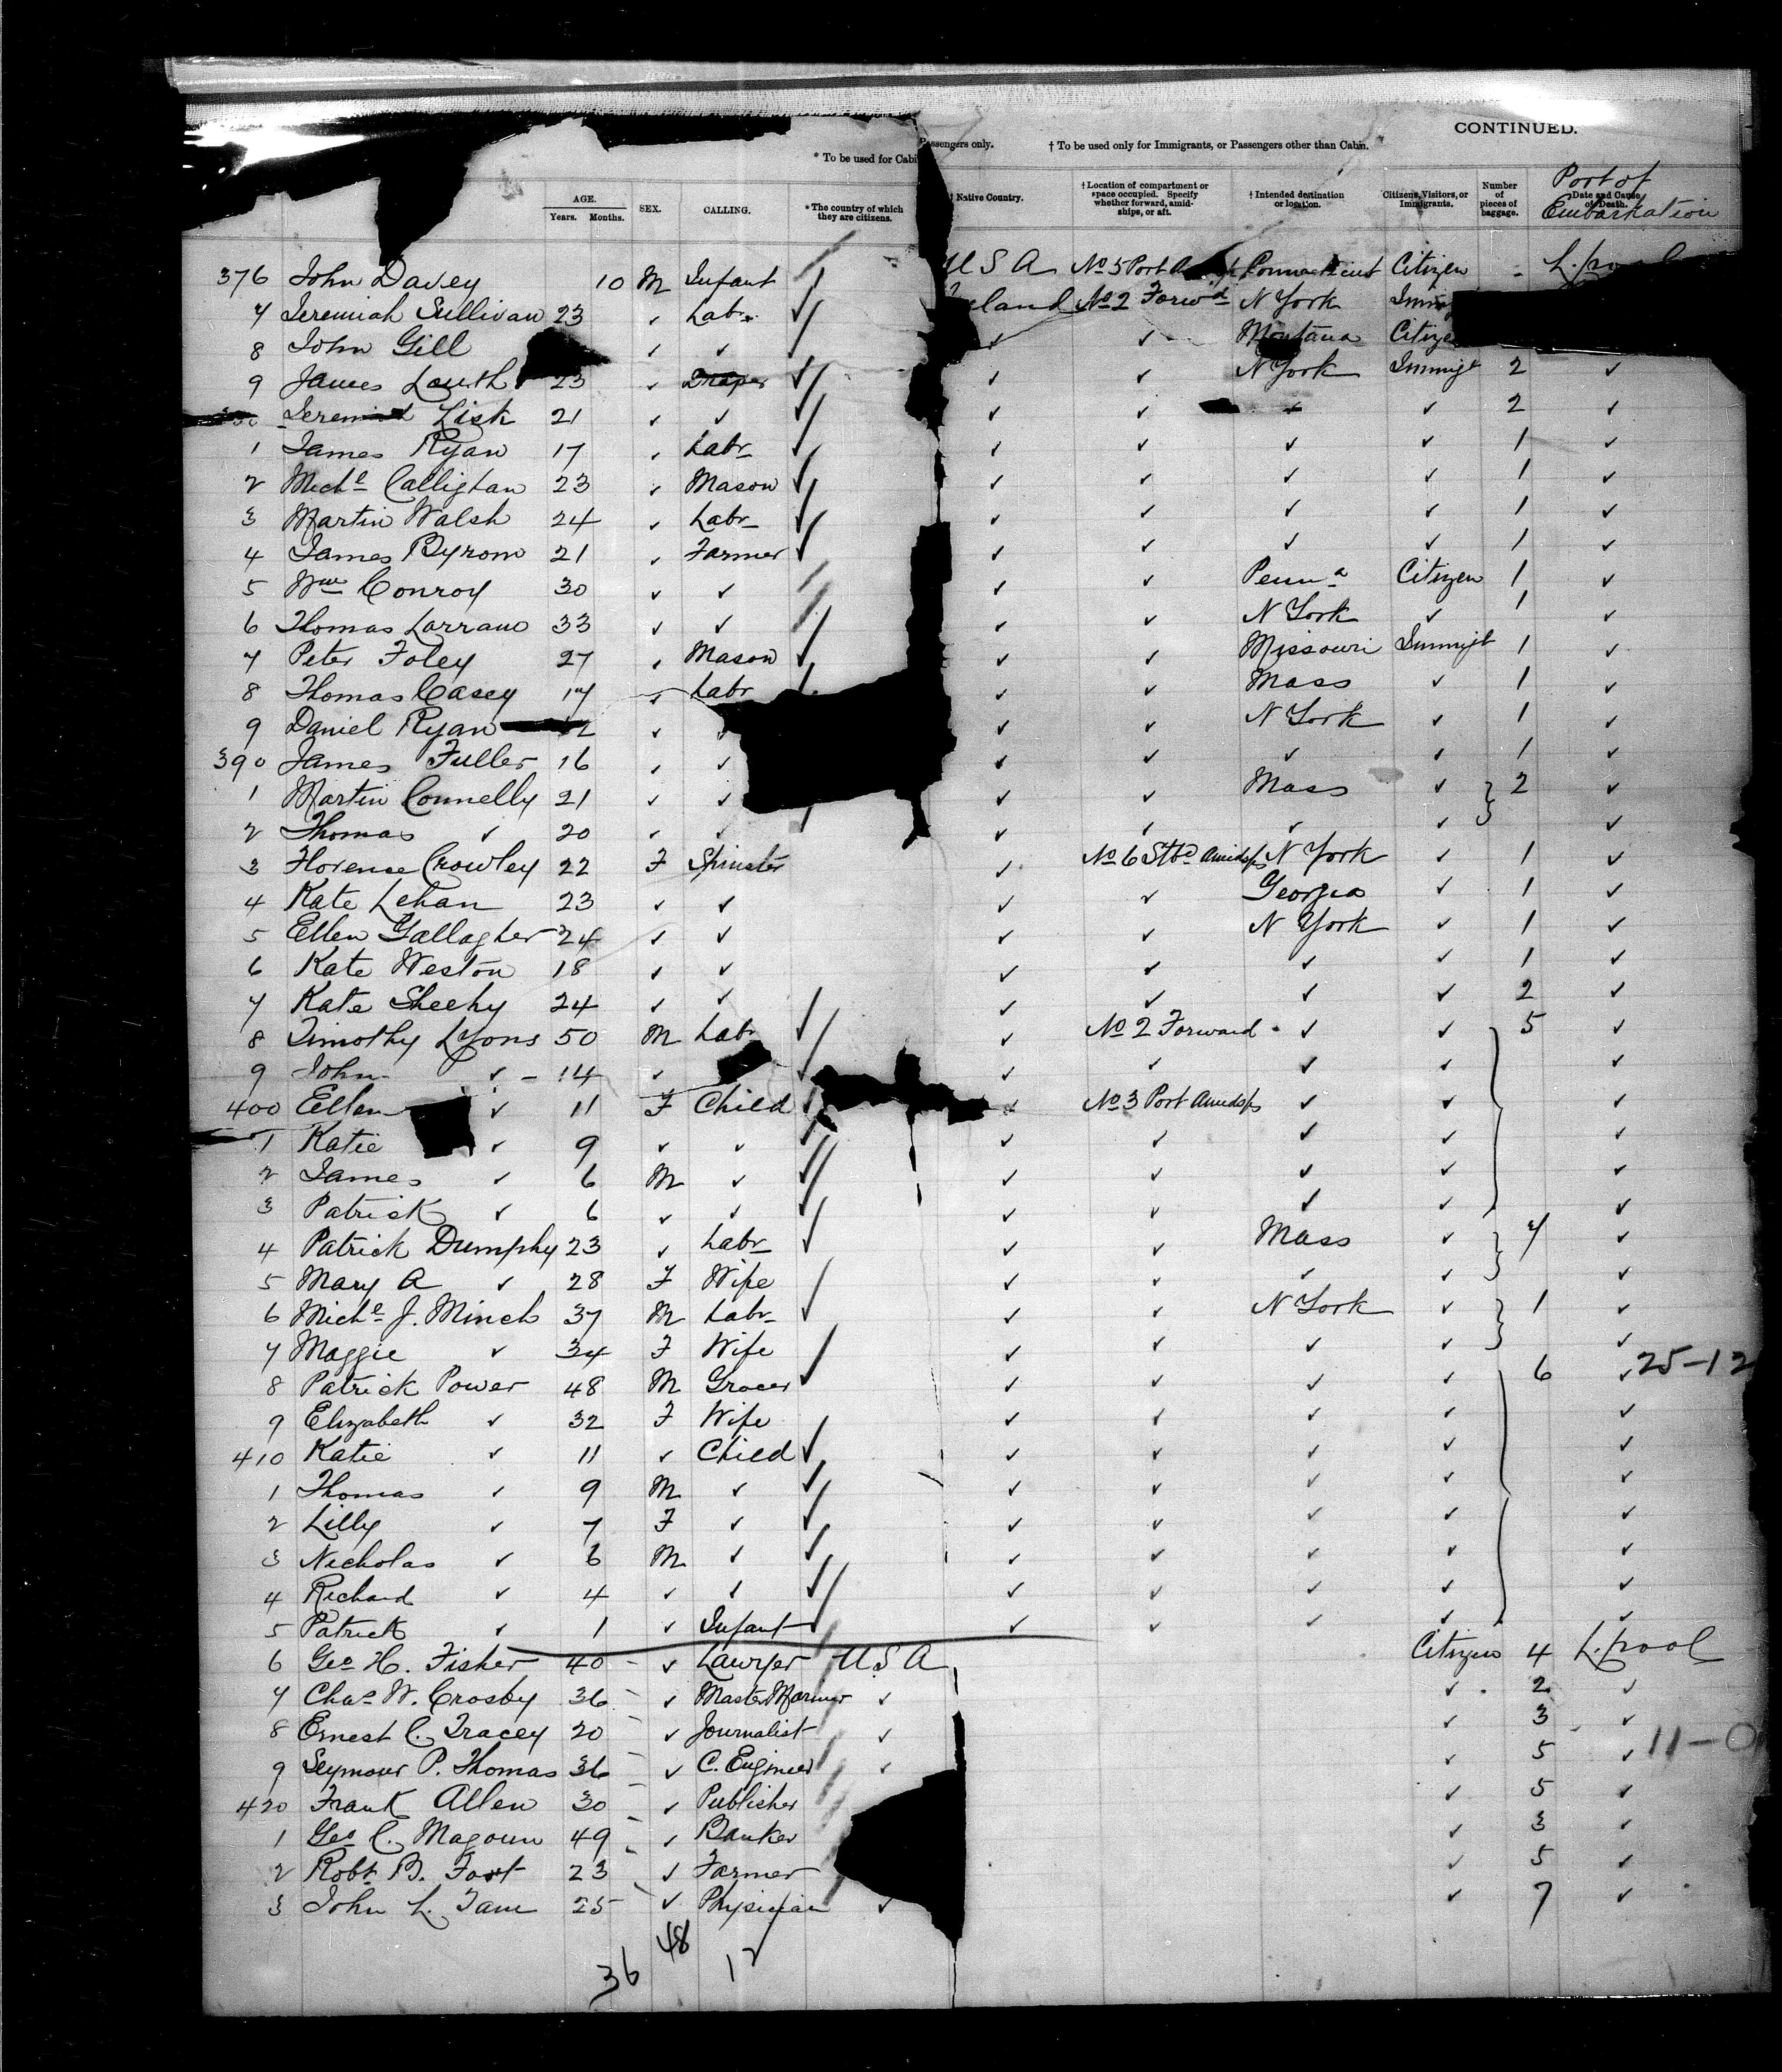 CONTINUED.
* To be used for Cabi Passengers only. † To be used only for Immigrants, or Passengers other than Cabin.
Port of Embarkation
AGE. Years. Months. SEX. CALLING. * The country of which they are citizens. † Native Country. † Location of compartment or space occupied. Specify whether forward, amidships, or aft. † Intended destination or location. Citizens, Visitors, or Immigrants. Number of pieces of baggage. Date and Cause of Death.
376 John Davey 10 M Infant U S A No 5 Port Connecticut Citizen - L.pool
7 Jeremiah Sullivan 23 ✓ Labr ✓ eland No 2 Forwd N York
8 John Gill ✓ ✓ ✓ ✓ Montana Citize
9 James Louth 23 ✓ Draper ✓ ✓ ✓ N York Immigt 2 ✓
Lisk 21 ✓ ✓ ✓ ✓ ✓ ✓ ✓ 2 ✓
1 James Ryan 17 ✓ Labr ✓ ✓ ✓ ✓ ✓ 1 ✓
2 Miche Callighan 23 ✓ Mason ✓ ✓ ✓ ✓ ✓ 1 ✓
3 Martin Walsh 24 ✓ Labr ✓ ✓ ✓ ✓ ✓ 1 ✓
4 James Byrom 21 ✓ Farmer ✓ ✓ ✓ ✓ ✓ 1 ✓
5 Wm Conroy 30 ✓ ✓ ✓ ✓ Penna Citizen 1 ✓
6 Thomas Larrane 33 ✓ ✓ ✓ ✓ N York ✓ 1 ✓
7 Peter Foley 27 ✓ Mason ✓ ✓ ✓ Missouri Immigt 1 ✓
8 Thomas Casey 17 ✓ Labr ✓ ✓ Mass ✓ 1 ✓
9 Daniel Ryan ✓ ✓ ✓ N York ✓ 1 ✓
390 James Fuller 16 ✓ ✓ ✓ ✓ ✓ ✓ 1 ✓
1 Martin Connelly 21 ✓ ✓ ✓ ✓ Mass ✓ 2 ✓
2 Thomas ✓ 20 ✓ ✓ ✓ ✓ ✓ ✓ ✓
3 Florence Crowley 22 F Spinster ✓ No 6 Stbd Amidsps N York ✓ 1 ✓
4 Kate Lehan 23 ✓ ✓ ✓ ✓ Georgia ✓ 1 ✓
5 Ellen Gallagher 24 ✓ ✓ ✓ ✓ N York ✓ 1 ✓
6 Kate Weston 18 ✓ ✓ ✓ ✓ ✓ ✓ 1 ✓
7 Kate Sheehy 24 ✓ ✓ ✓ ✓ ✓ ✓ 2 ✓
8 Timothy Lyons 50 M Labr ✓ ✓ No 2 Forward ✓ ✓ 5 ✓
9 John ✓ 14 ✓ ✓ ✓ ✓ ✓ ✓ ✓
400 Ellen ✓ 11 F Child ✓ ✓ No 3 Port Amidsps ✓ ✓ ✓
1 Katie ✓ 9 ✓ ✓ ✓ ✓ ✓ ✓ ✓
2 James ✓ 6 M ✓ ✓ ✓ ✓ ✓ ✓ ✓
3 Patrick ✓ 6 ✓ ✓ ✓ ✓ ✓ ✓ ✓ ✓
4 Patrick Dumphy 23 ✓ Labr ✓ ✓ ✓ Mass ✓ 7 ✓
5 Mary A ✓ 28 F Wife ✓ ✓ ✓ ✓ ✓
6 Miche J. Minch 37 M Labr ✓ ✓ ✓ N York ✓ 1 ✓
7 Maggie ✓ 34 F Wife ✓ ✓ ✓ ✓ ✓
8 Patrick Power 48 M Grocer ✓ ✓ ✓ ✓ ✓ 6 ✓ 25-12
9 Elizabeth ✓ 32 F Wife ✓ ✓ ✓ ✓ ✓
410 Katie ✓ 11 ✓ Child ✓ ✓ ✓ ✓ ✓ ✓
1 Thomas ✓ 9 M ✓ ✓ ✓ ✓ ✓ ✓ ✓
2 Lilly ✓ 7 F ✓ ✓ ✓ ✓ ✓ ✓ ✓
3 Nicholas ✓ 6 M ✓ ✓ ✓ ✓ ✓ ✓ ✓
4 Richard ✓ 4 ✓ ✓ ✓ ✓ ✓ ✓ ✓ ✓
5 Patrick ✓ 1 ✓ Infant ✓ ✓ ✓ ✓ ✓ ✓
6 Geo H. Fisher 40 ✓ Lawyer U.S.A Citizen 4 L.pool
7 Chas W. Crosby 36 ✓ Master Mariner ✓ ✓ 2 ✓
8 Ernest C. Tracey 20 ✓ Journalist ✓ ✓ 3 ✓
9 Seymour P. Thomas 36 ✓ C. Engineer ✓ ✓ 5 ✓ 11-0
420 Frank Allen 30 ✓ Publisher ✓ 5 ✓
1 Geo C. Magoun 49 ✓ Banker ✓ 3 ✓
2 Robt B. Fort 23 ✓ Farmer ✓ 5 ✓
3 John L. Tam 25 ✓ Physician ✓ ✓ 7 ✓
36 48 12